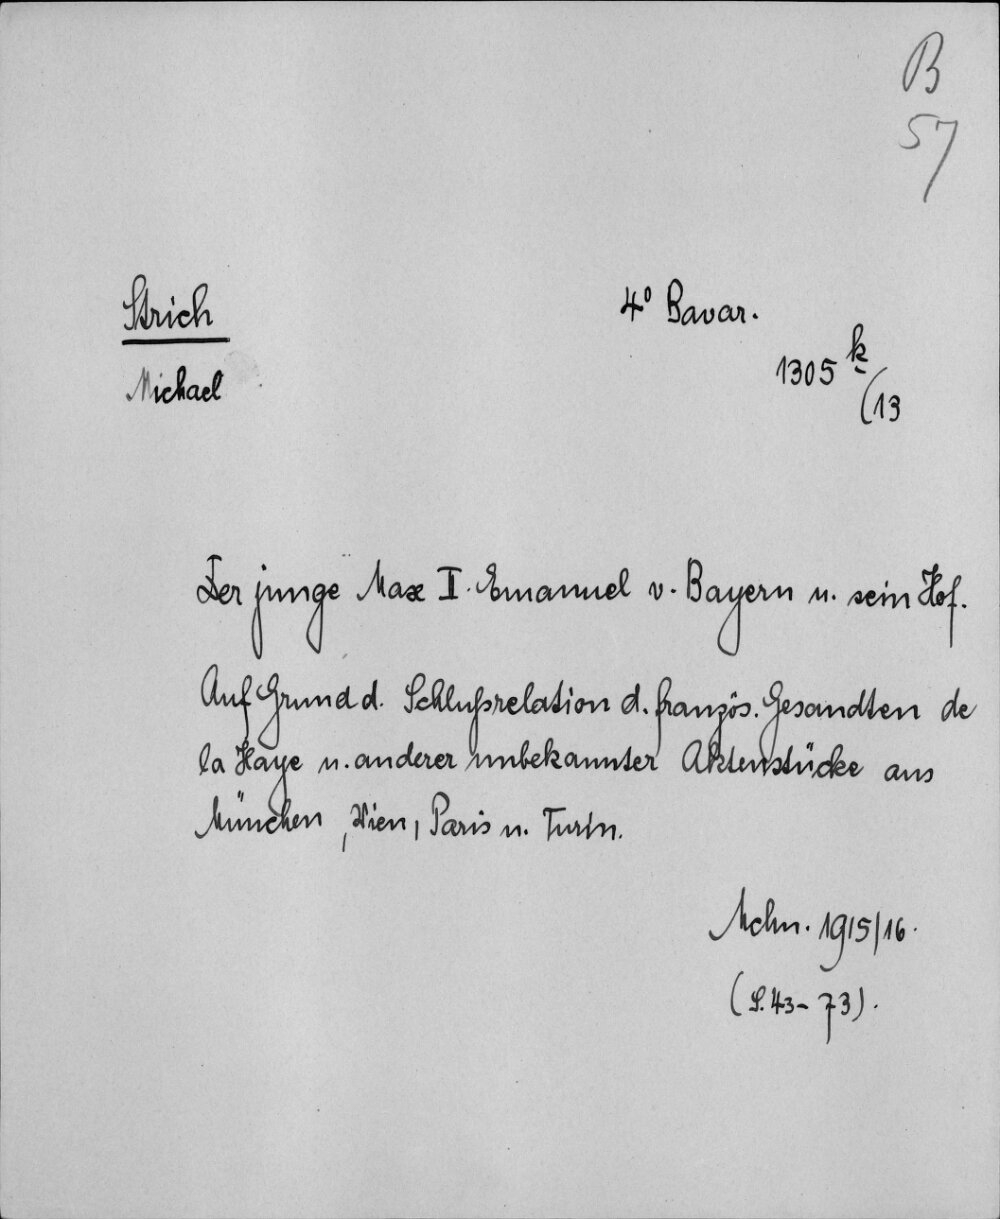 B
57
Strich
4° Bavar.
Michael
1305 k
(13
Der junge Max II. Emanuel v. Bayern u. sein Hof.
Auf Grund d. Schlußrelation d. französ. Gesandten de
la Haye u. anderer unbekannter Aktenstücke aus
München, Wien, Paris u. Turin.
Mchn. 1915/16.
(S. 43-73).